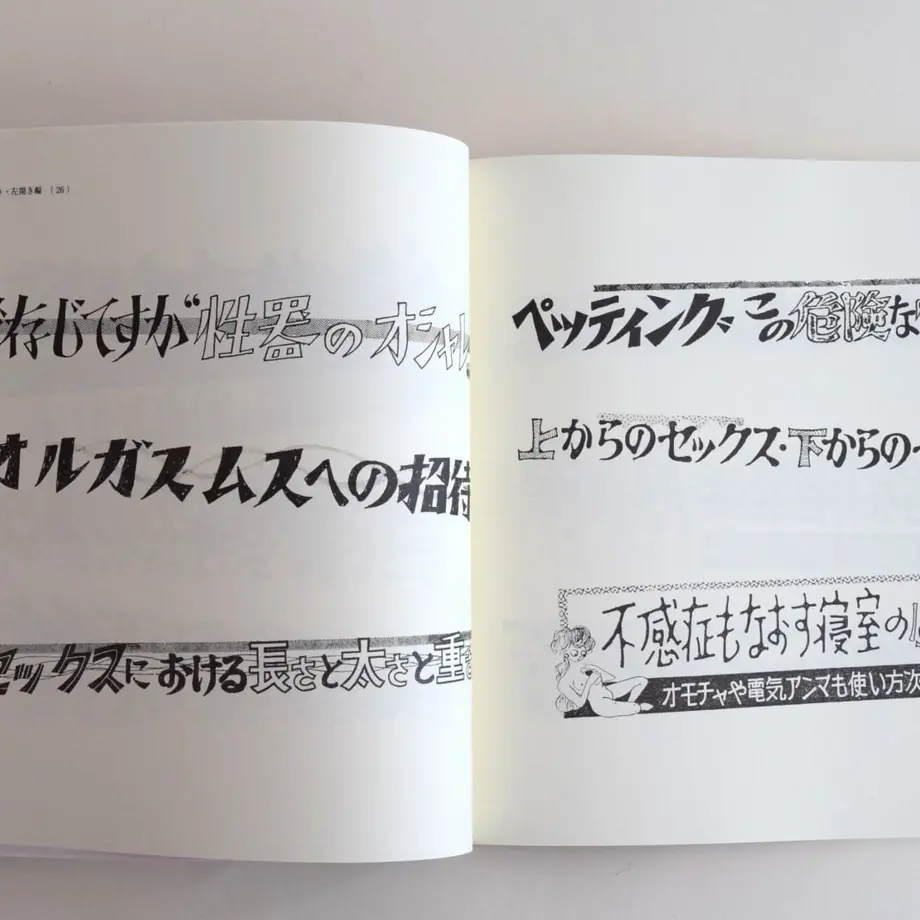 ・左開き編 (26)
存じてすか“性器のオシャレ
オルガスムスへの招待
セックスにおける長さと太さと重さ
ペッティングこの危険な
上からのセックス・下からの
不感症もなおす寝室の
オモチャや電気アンマも使い方次